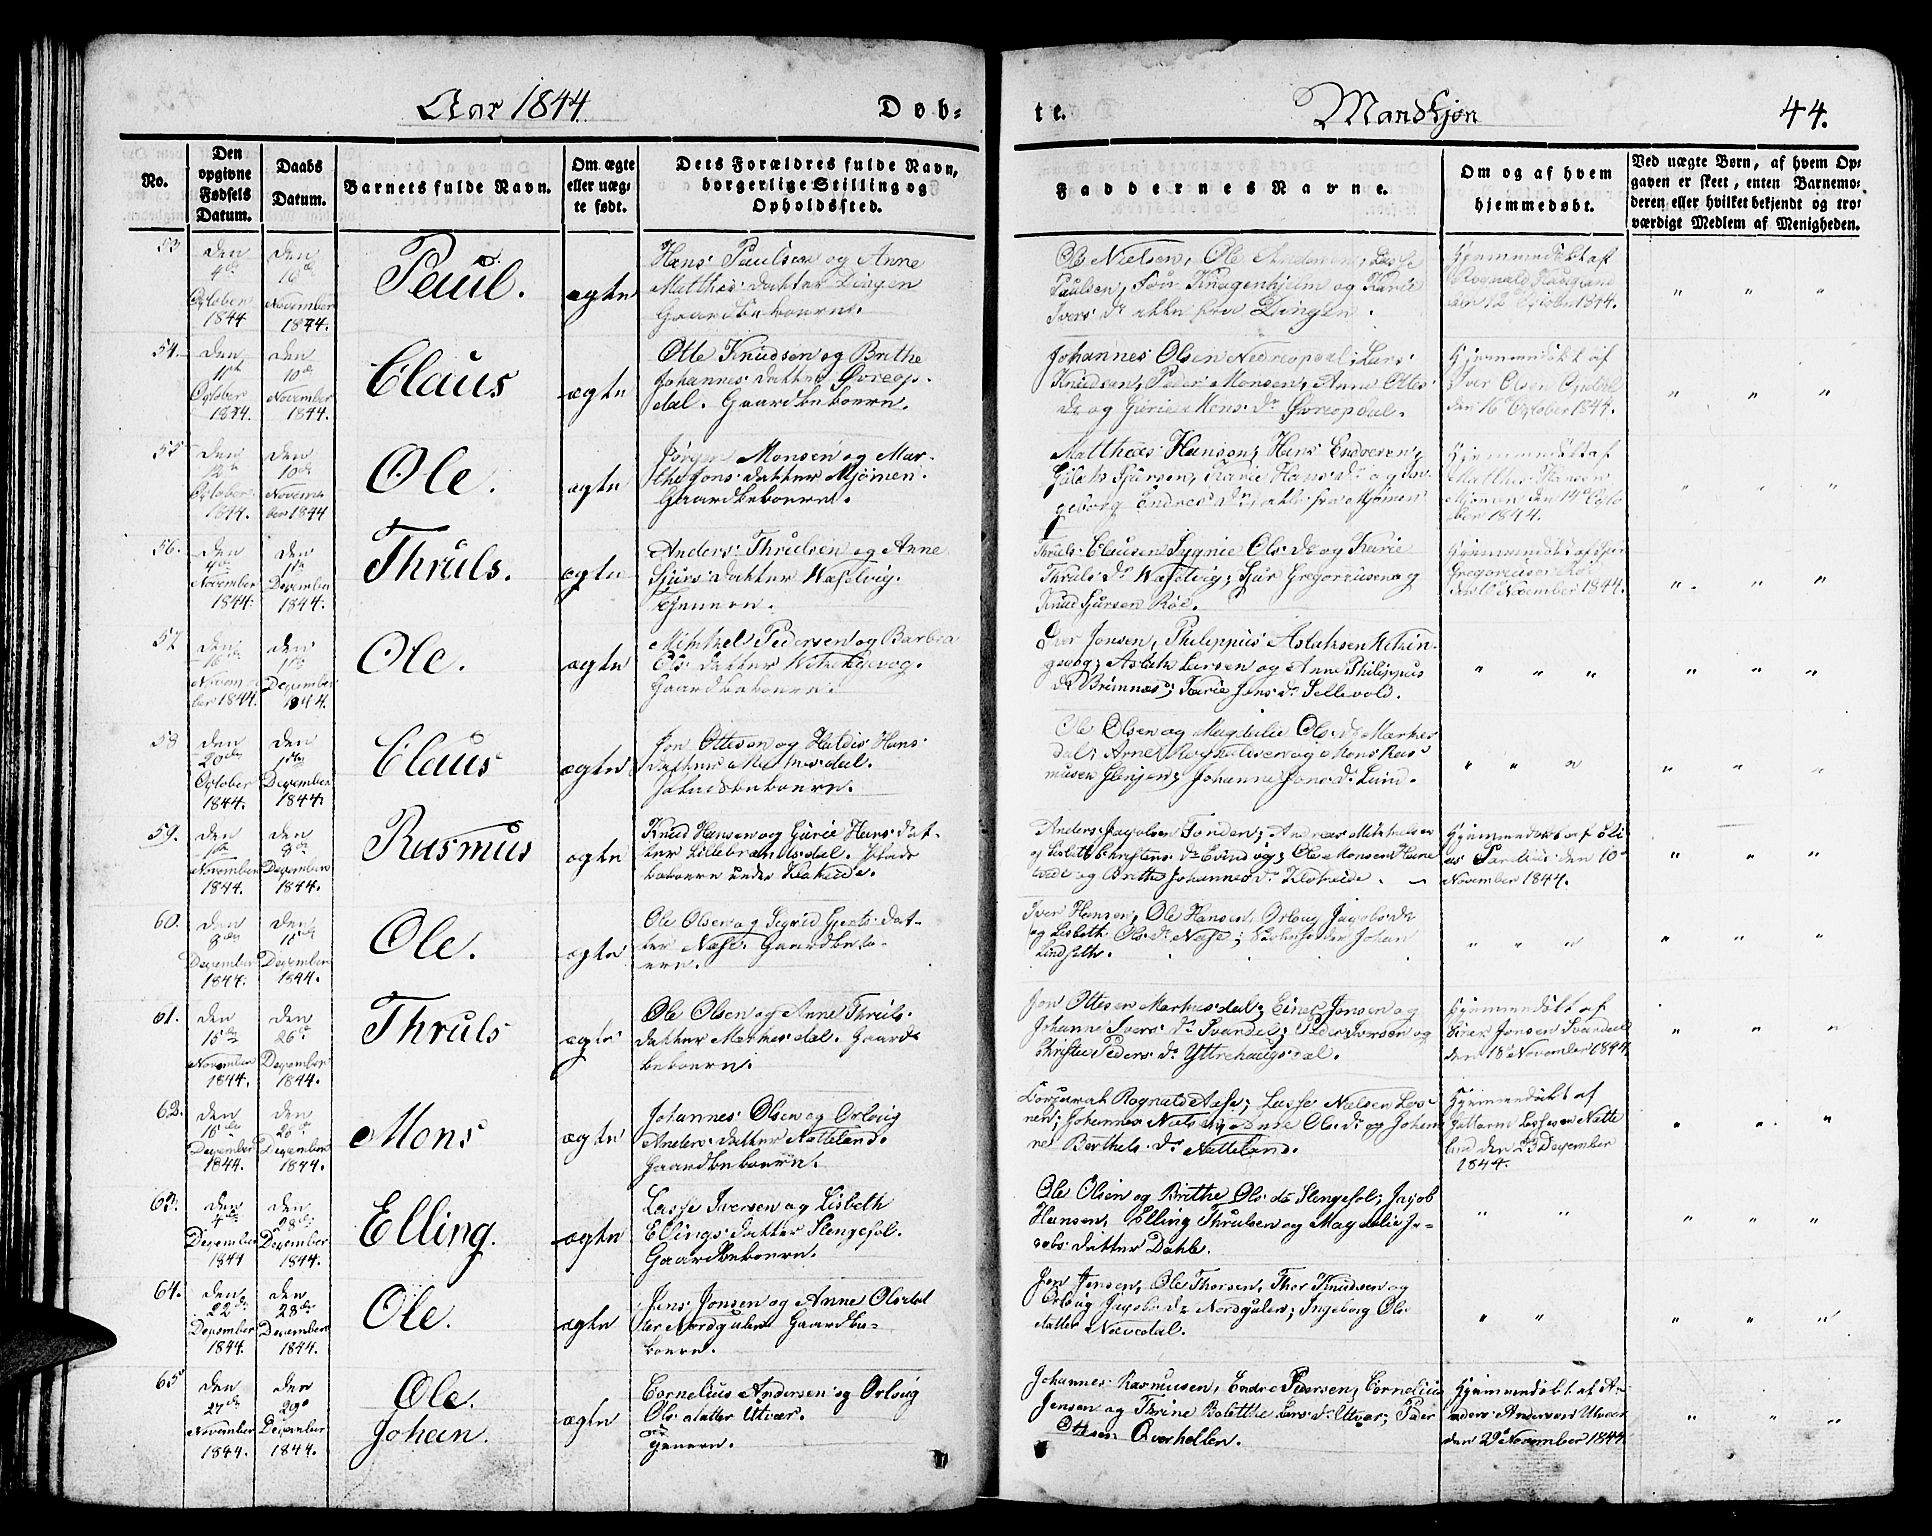 Aar 1844.
Døb-
te.
Mandkjøn
44.
No.
Den opgivne Fødsels Datum.
Daabs Datum.
Barnets fulde Navn.
Om ægte eller uægte født.
Dets Forældres fulde Navn, borgerlige Stilling og Opholdssted.
Faddernes Navne.
Om og af hvem hjemmedøbt.
Ved uægte Børn, af hvem Opgaven er skeet, enten Barnemoderen eller hvilket bekjendt og troværdigt Medlem af Menigheden.
53
den 4de October 1844
den 10de November 1844.
Paul.
ægte
Hans Paulsen og Anne
Matthas datter Dingen
Gaardbeboere.
Ole Nielsen, Ole Andersen, Lasse
Paulsen, Knagenhjelm og Karie
Ivers dr alle fra Dingen.
Hjemmedøbt af
Rognald Haugland
den 12 October 1844.
54.
den 11te October 1844.
den 10de November 1844.
Claus
ægte
Otte Knudsen og Brithe
Johannes datter Øvreop-
dal. Gaardbeboere.
Johannes Olsen Nedreopdal; Lars
Knudsen, Peder Monsen, Anne Ottes
dr og Gurie Mons dr Øvreopdal.
Hjemmedøbt af
Iver Olsen Opdal
den 16 October 1844.
55
den 12te October 1844.
den 10de November 1844
Ole.
ægte
Jörgen Monsen og Mar-
the Jons datter Mjömen.
Gaardbeboere.
Matthas Hansen, Hans Endresen,
Sjursen, Karie Hans dr og In-
geborg Endres dr, alle fra Mjömen
Hjemmedøbt af
Matthas Hansen
Mjömen den 14de Octo
ber 1844.
56.
den 4de November 1844.
den 1te December 1844.
Thruls.
ægte
Anders Thrulsen og Anne
Sjurs datter
Tjenere.
Thruls Clausen Sygnie Ols dr og Karie
Thruls dr Sjur Gregoriusen og
Knud Sjursen Röe.
Hjemmedøbt af Sjur
Gregoriusen Röe
den 10 November 1844.
57
den 16de November 1844.
den 1te December 1844.
Ole.
ægte
Mikkel Pedersen og Barbra
Ols datter
Gaardbeboere.
Peer Jonsen, Philippus Aslaksen
Aslak Larsen og Anne Philippus
dr Brimnæs; Karie Jens dr Sellevold.
58
den 20de October 1844.
den 1te December 1844.
Claus
ægte
Jon Ottesen og Haldis Hans
datter Merkesdal.
Jordbeboere.
Ole Olsen og Magdelie Ols dr Merkes
dal; Arne og Mons Ras-
musen Johanne Jons dr Lund.
59.
den 1te November 1844.
den 8de December 1844.
Rasmus
ægte
Knud Hansen og Gurie Hans dat-
ter Lillebrændsdal.
beboere under
Anders Jacobsen Anders Mikkelsen
og Lisbeth Christens dr Evindvig; Ole Monsen
og Brithe Johannes dr
Hjemmedøbt af Eli
as den 10de
November 1844.
60.
den 8de December 1844.
den 15de December 1844.
Ole.
ægte
Ole Olsen og Sigrid Hans dat-
ter Næse. Gaardbebo-
ere.
Iver Hansen, Ole Hansen, Orloug Jacobs dr
og Lisbeth Ols dr Næse; Johan
Lindseth.
61.
den 15de November 1844.
den 26de December 1844.
Thruls
ægte
Ole Olsen og Anne Thruls
datter Merkesdal. Gaard-
beboere.
Jon Ottesen Merkesdal; Einer Jonsen og
Johanne Ivers dr Svardal; Peder Iversen og
Christie Peders dr Yttrehaugsdal.
Hjemmedøbt af
Einer Jonsen Svardal
den 18de November 1844.
62.
den 16de December 1844.
den 26de December 1844.
Mons
ægte
Johannes Olsen og Orloug
Anders datter Natteland.
Gaardbeboere.
Rognald Lasse Nielsen
Johannes Nielsen, Anne Ols dr og Johan
ne Berthels dr Natteland.
Hjemmedøbt af
Lassesen Natte
land den 23 December
1844.
63.
den 4de December 1844
den 28de December 1844.
Elling.
ægte
Lasse Iversen og Lisbeth
Ellings datter Slengesol.
Gaardbeboere.
Ole Olsen og Brithe Ols dr Slengesol; Jacob
Hansen, Elling Thrulsen og Magdelie Ja-
cobs datter Dahle.
64.
den 22de December 1844.
den 28de December 1844.
Ole.
ægte
Jens Jonsen og Anne Ols dat
ter Nordgulen Gaardbe-
boere.
Jon Jensen, Ole Thorsen, Thor Knudsen og
Orloug Jacobs dr Nordgulen; Ingeborg Ols
datter Nævedal.
65
den 27de November 1844.
den 29de December 1844.
Ole
Johan.
ægte
Cornelius Andersen og Orloug
Ols datter Utvær.
Johannes Rasmusen, Endre Pedersen, Cornelius
Jensen og Thrine Bolethe Lars dr Utvær; Peder
Ottesen Øverhellen.
Hjemmedøbt af A-
nders Andersen Utvær
den 29 November 1844